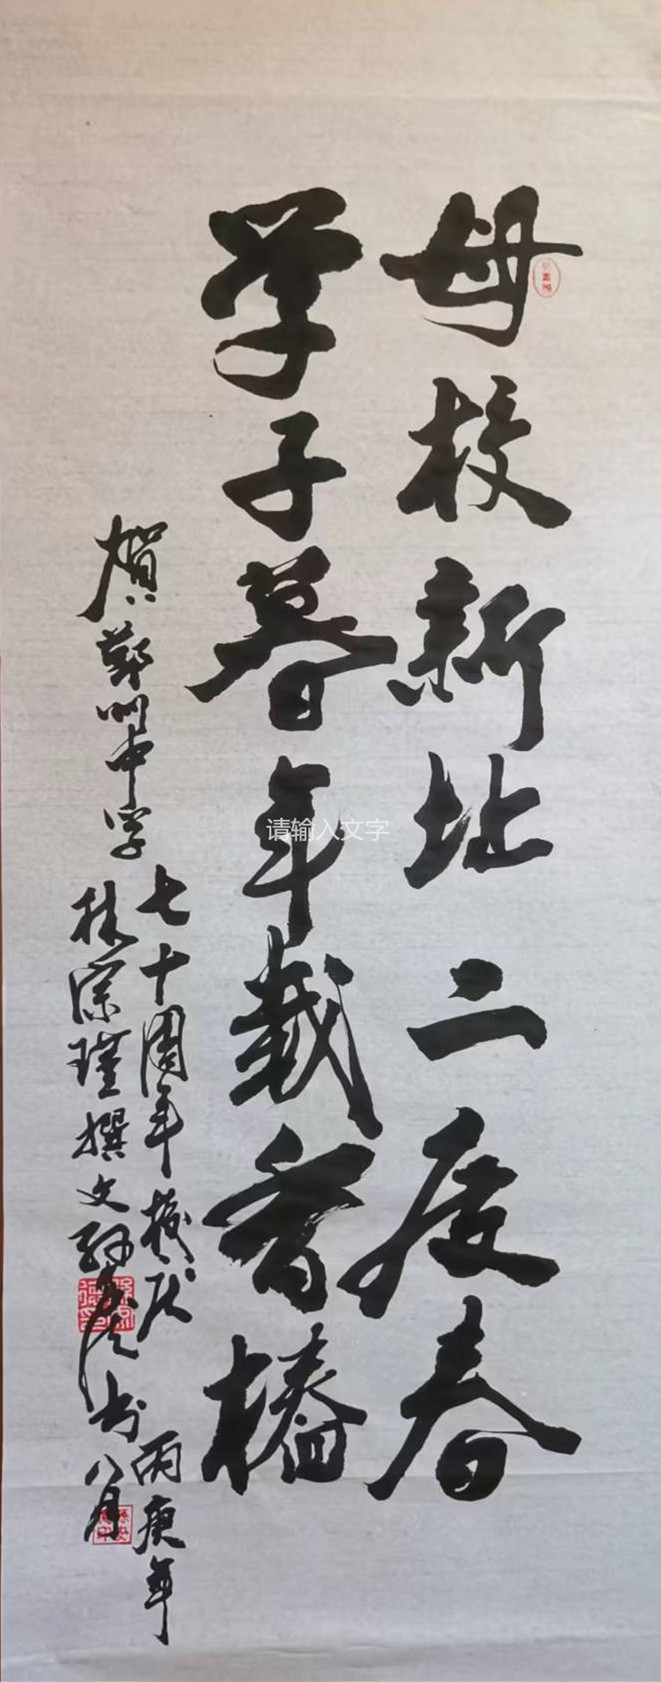 母校新址二度春
学子暮年栽香椿
贺郑州中学
七十周年校庆
丙庚年
林宗瑾撰文
书
八月
请输入文字